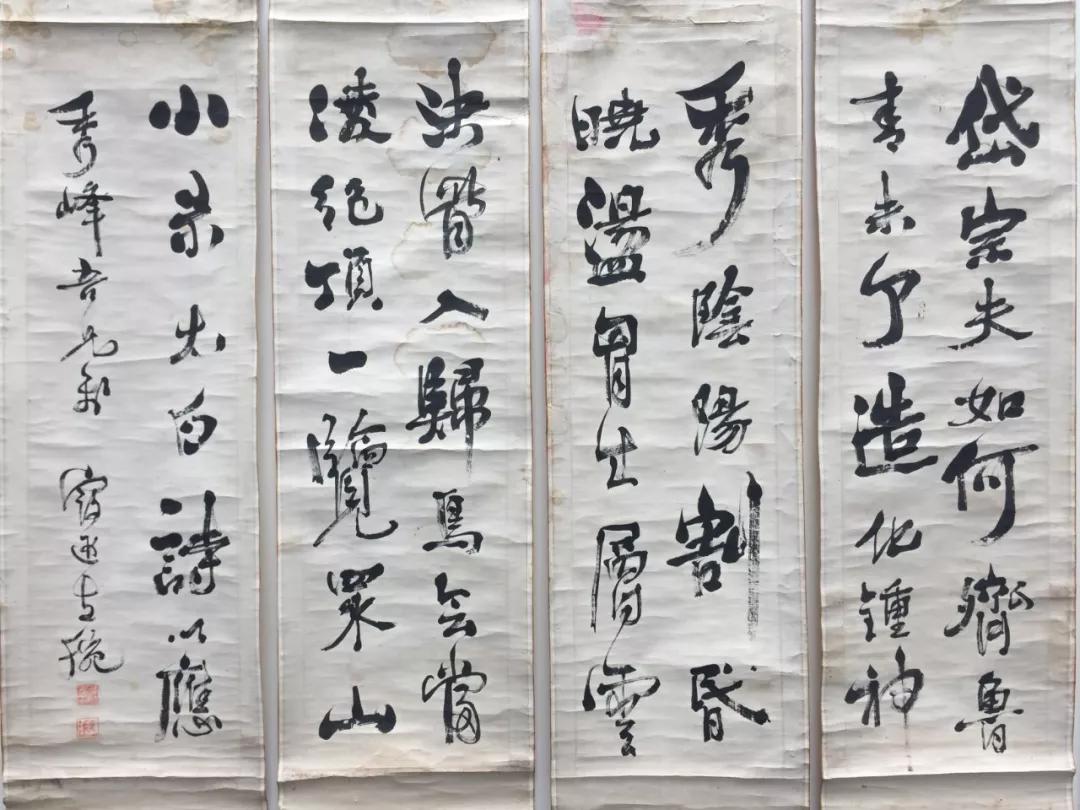 岱宗夫如何齊魯
青未了造化鍾神
秀陰陽割昏
曉盪胷生層雲
決眥入歸鳥会當
淩絕頂一覽眾山
小录白詩以應
秀峰吾兄